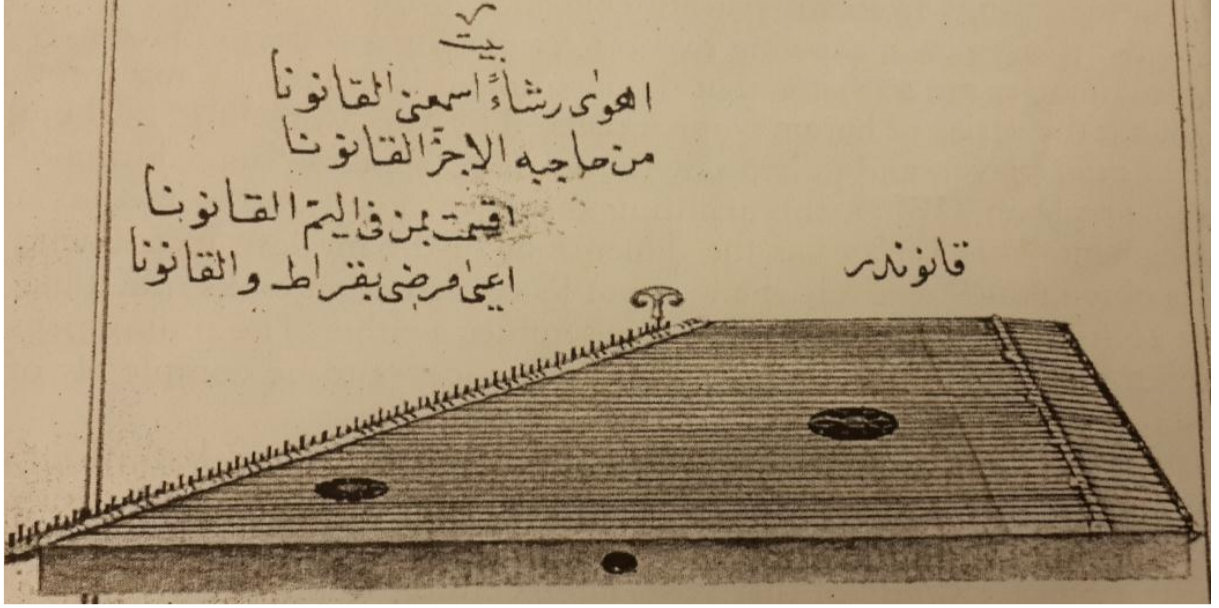 بيت
اهوى رشاءً اسمعنى القانونا
من حاجبه الاجزّ القانونا
اقسمت بمن فى اليمّ القانونا
اعيى مرضى بقراط والقانونا
قانوندر